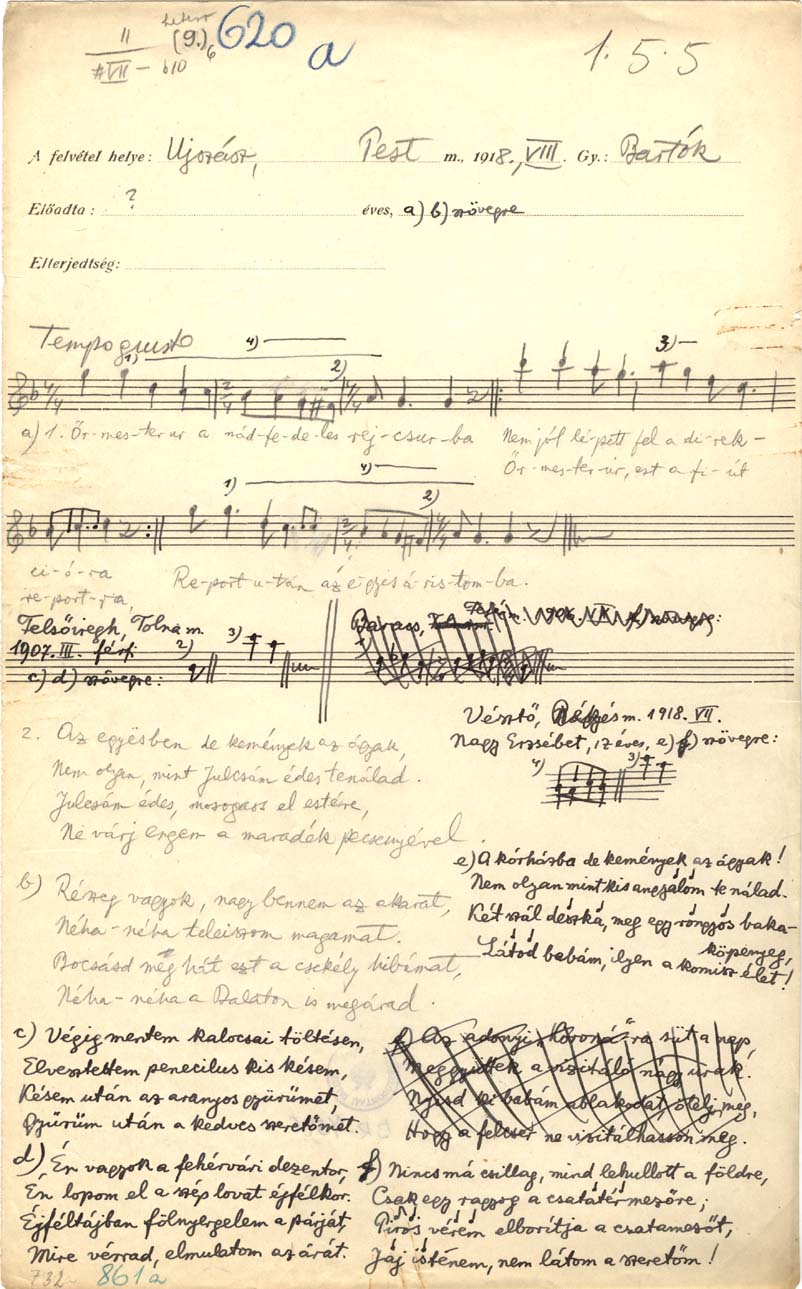 II
#VII – b10
(9.) 6
620
a
1. 5. 5
A felvétel helye: Ujszász, Pest m., 1918., VIII. Gy.: Bartók
Előadta: ? éves, a) b) szövegre
Elterjedtség:
Tempo giusto
1) 4) 2) 3)
a) 1. Őr-mes-ter ur a nád-fe-de-les rej-csur-ba Nem jól lé-pett fel a di-rek-
Őr-mes-ter úr, ezt a fi-út
1) 4) 2)
ci-ó-ra Re-port u-tán az egyes á-ris-tom-ba.
re-port-ra,
Felsőiregh, Tolna m.
1907. III. férfi
c) d) szövegre:
2) 3)
Baracs, 1906. f) szövegre:
Vésztő, Békés m. 1918. VII.
Nagy Erzsébet, 17 éves, e) f) szövegre:
4) 3)
2. Az egyësben de kemények az ágyak,
Nem olyan, mint Julcsám édes tenálad.
Julcsám édes, mosogass el estére,
Ne várj engem a maradék pecsenyével.
b) Részeg vagyok, nagy bennem az akarat,
Néha-néha teleiszom magamat.
Bocsásd még hát ezt a csekély hibámat,
Néha-néha a Balaton is megárad.
e) A kórházba de kemények az ágyak!
Nem olyan mint kis angyalom te nálad.
Két szál deszka, meg egy rongyos baka-
köpenyeg,
Látod babám, ilyen a komisz élet!
c) Végig mentem kalocsai töltésen,
Elvesztettem penecilus kis késem,
Késem után az aranyos gyürümet,
Gyürüm után a kedves szeretőmet.
d) Én vagyok a fehérvári dezentor,
Én lopom el a szép lovat éjfélkor.
Éjféltájban fölnyergelem a párját,
Mire vérrad, elmulatom az árát.
f) Az adonyi „Koroná"-ra süt a nap,
Meggyüttek a vizitáló nagy urak.
Nyisd ki babám ablakodat, ölelj meg,
Hogy a felcser ne vizitálhasson meg.
f) Nincs má csillag, mind lehullott a földre,
Csak egy ragyog a csatatér mezőre;
Piros vérëm elborítja a csatamezőt,
Jáj istënem, nem látom a szeretőm!
732
861a